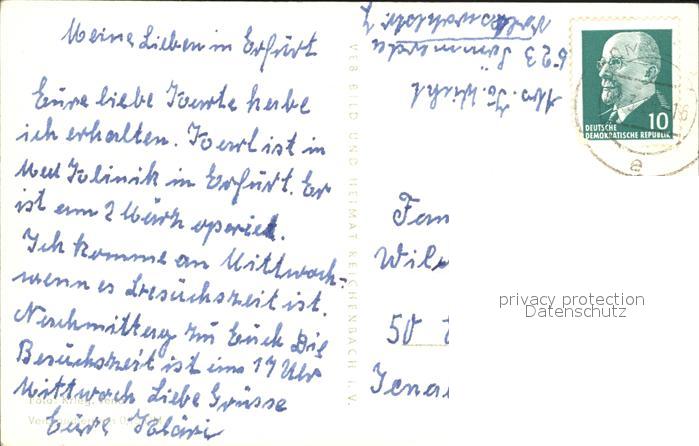 Meine Lieben in Erfurt
Eure liebe Karte habe
ich erhalten. Karl ist in
Med Klinik in Erfurt. Er
ist am 2 März operiet.
Ich komme an Mittwoch
wenn es Besuchszeit ist.
Nachmittag zu Euch Die
Besuchszeit ist um 17 Uhr
Mittwoch Liebe Grüsse
Eure Kläri
VEB BILD UND HEIMAT REICHENBACH i. V.
523 Sömmerda
10
DEUTSCHE
DEMOKRATISCHE REPUBLIK
Fam
Wil
50
Jena
privacy protection
Datenschutz